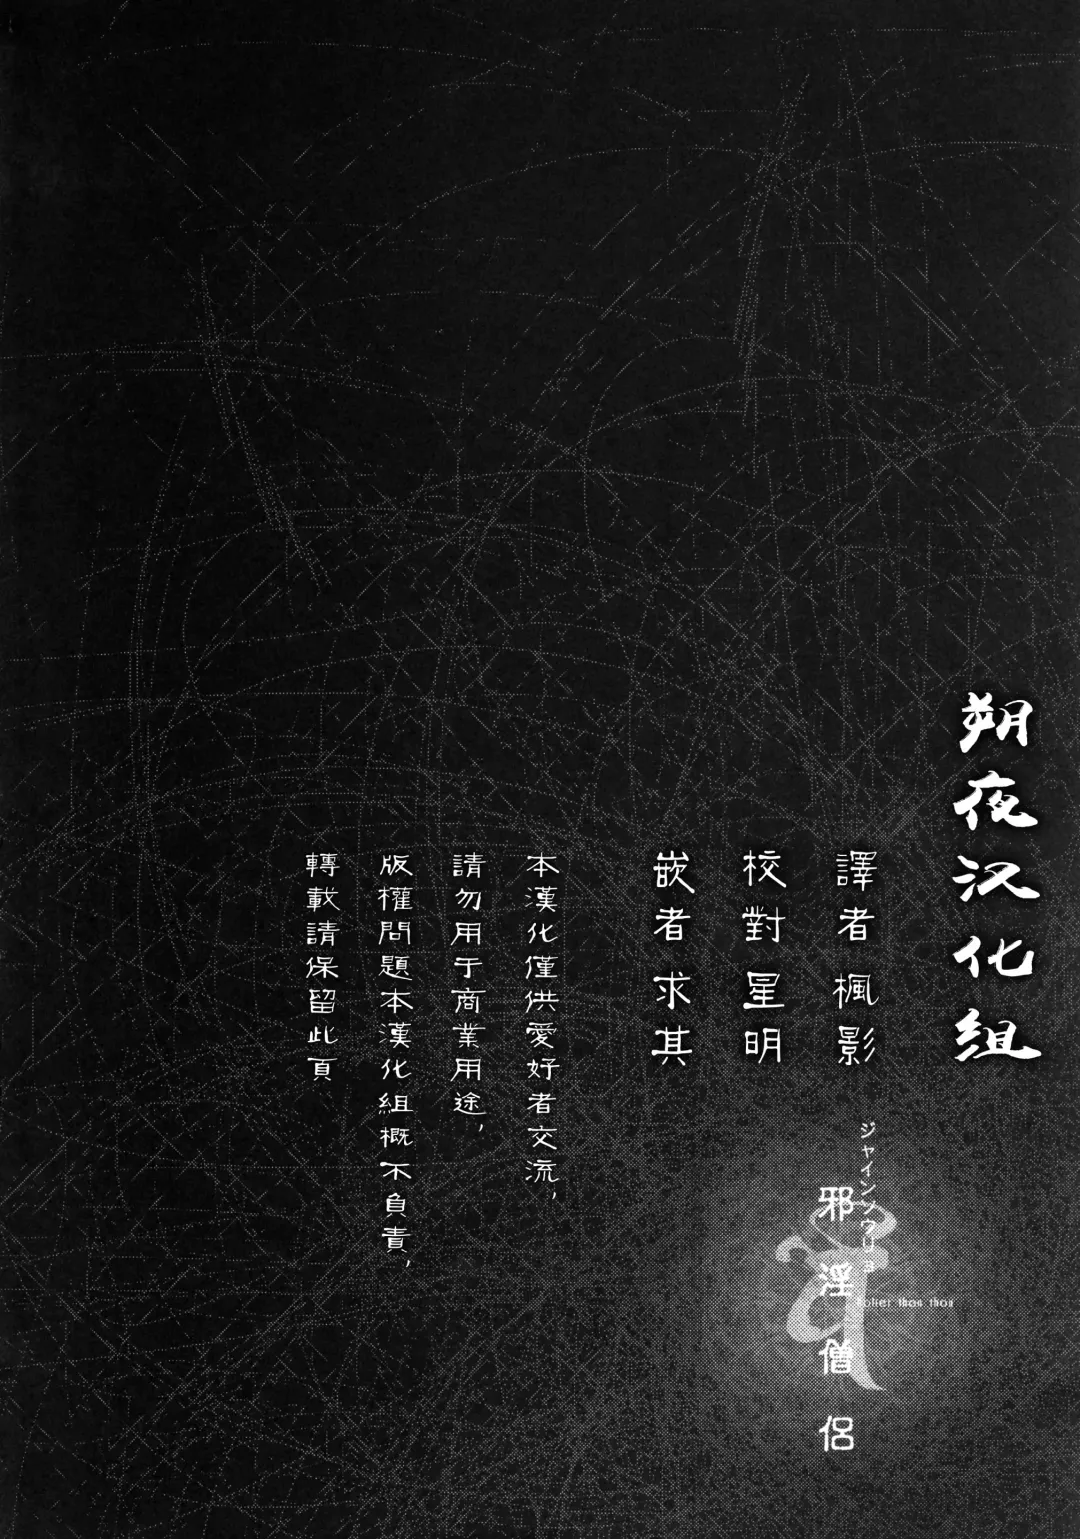 朔夜汉化组
譯者 楓影
校對 星明
嵌者 求其
本漢化僅供愛好者交流,
請勿用于商業用途,
版權問題本漢化組概不負責,
轉載請保留此頁
ジャインソウリョ
邪淫僧侶
Holier than thou